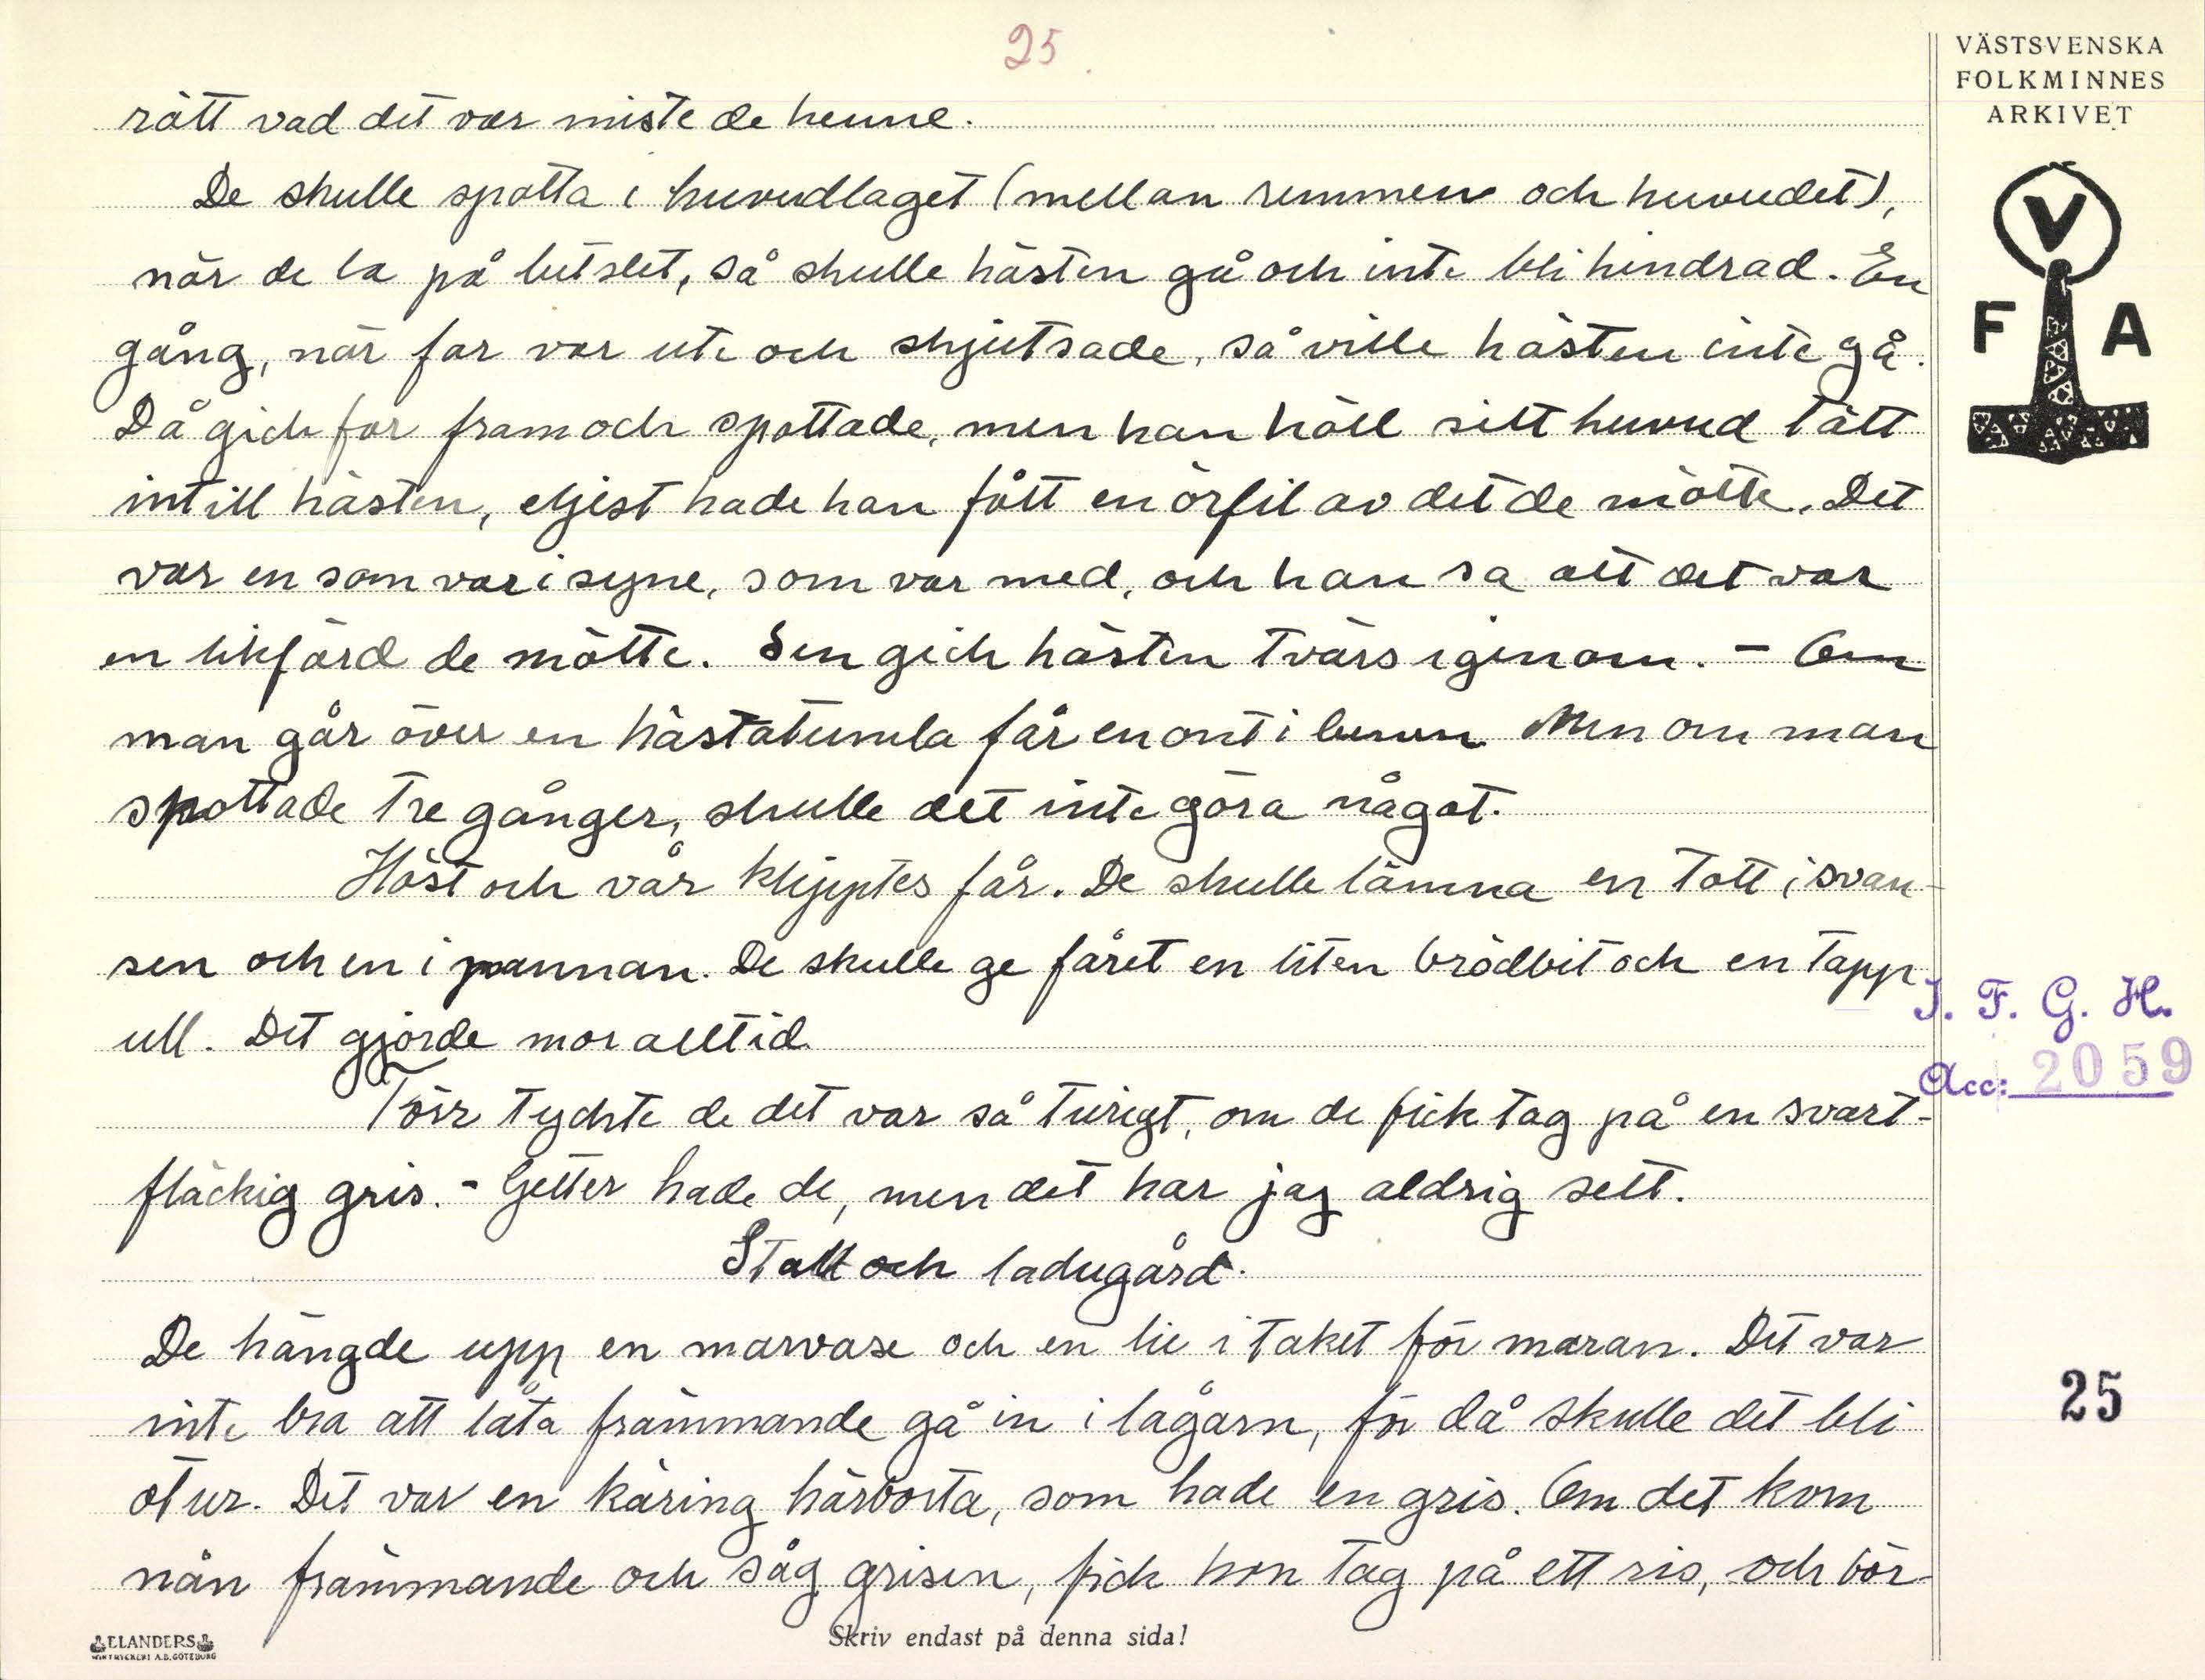 25
VÄSTSVENSKA
FOLKMINNES
ARKIVET
V
F A
rätt vad det var miste de henne.
De skulle spotta i huvudlaget (mellan remmen och huvudet),
när de la på betslet, så skulle hästen gå och inte bli hindrad. En
gång, när far var ute och skjutsade, så ville hästen inte gå.
Då gick far fram och spottade, men han höll sitt huvud tätt
intill hästen, eljest hade han fått en örfil av det de mötte. Det
var en som var i syne, som var med, och han sa att det var
en likfärd de mötte. Sen gick hästen tvärs igenom. - Om
man går över en hästatumla får en ont i benen. Men om man
spottade tre gånger, skulle det inte göra något.
Höst och vår klipptes får. De skulle lämna en tott i svan-
sen och en i pannan. De skulle ge fåret en liten brödbit och en tapp
ull. Det gjorde mor alltid.
I. F. G. H.
Acc: 2059
Törr tyckte de det var så turigt, om de fick tag på en svart-
fläckig gris. - Getter hade de, men det har jag aldrig sett.
Stall och ladugård.
De hängde upp en marvase och en lie i taket för maran. Det var
inte bra att låta främmande gå in i lågarn, för då skulle det bli
otur. Det var en käring härborta, som hade en gris. Om det kom
25
nån främmande och såg grisen, fick hon tag på ett ris, och bör-
ELANDERS
Skriv endast på denna sida!